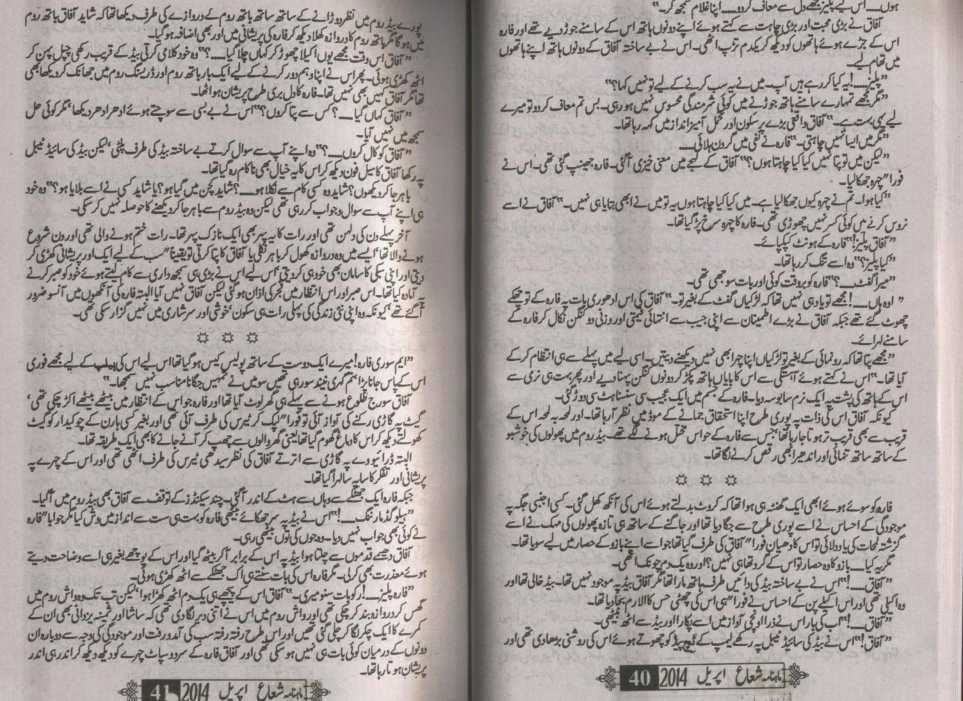 ہوں۔ اس لیے پلیز مجھے دل سے معاف کردو۔ اپنا غلام سمجھ کر۔"
آفاق نے بڑی محبت اور بڑی چاہت سے کہتے ہوئے اپنے دونوں ہاتھ اس کے سامنے جوڑ دیے تھے اور فارہ
اس کے جڑے ہوئے ہاتھوں کو دیکھ کر یکدم تڑپ اٹھی۔ اس نے بے ساختہ آفاق کے دونوں ہاتھ اپنے ہاتھوں
میں تھام لیے۔
"پلیز۔ یہ کیا کررہے ہیں آپ۔ میں نے یہ سب کرنے کے لیے تو نہیں کہا؟"
"مگر مجھے تمہارے سامنے ہاتھ جوڑنے میں کوئی شرمندگی محسوس نہیں ہورہی۔ بس تم معاف کردو تو میرے
لیے یہی بہت ہے۔" آفاق واقعی بڑے پرسکون اور تحمل آمیز انداز میں کہہ رہا تھا۔
"مگر میں ایسا نہیں چاہتی۔" فارہ نے نفی میں گردن ہلائی۔
"لیکن میں تو بتا نہیں کیا کیا چاہتا ہوں؟" آفاق کے لہجے میں معنی خیزی آگئی۔ فارہ جھینپ گئی تھی۔ اس نے
فورا" چہرہ جھکا لیا۔
"کیا ہوا۔ تم نے چہرہ کیوں جھکا لیا ہے۔ میں کیا کیا چاہتا ہوں یہ تو میں نے ابھی بتایا ہی نہیں۔" آفاق نے اسے
نروس کرنے میں کوئی کسر نہیں چھوڑی تھی۔ فارہ کا چہرہ سرخ پڑ گیا تھا۔
"آفاق پلیز!" فارہ کے ہونٹ کپکپائے۔
"کیا پلیز؟" وہ اسے تنگ کررہا تھا۔
"میرا گفٹ۔؟" فارہ کو بروقت کوئی اور بات سوجھی تھی۔
"اوہ ہاں۔ مجھے تو یاد ہی نہیں تھا کہ لڑکیاں گفٹ کے بغیر تو۔" آفاق کی اس ادھوری بات پہ فارہ کے تو چھکے
چھوٹ گئے تھے جبکہ آفاق نے بڑے اطمینان سے اپنی جیب سے انتہائی قیمتی اور وزنی دو کنگن نکال کر فارہ کے
سامنے لہرائے۔
"مجھے پتا تھا کہ رونمائی کے بغیر تو لڑکیاں اپنا چہرا بھی نہیں دیکھنے دیتیں۔ اسی لیے میں پہلے سے ہی انتظام کرکے
آیا تھا۔" اس نے کہتے ہوئے آہستگی سے اس کا بایاں ہاتھ پکڑ کر دونوں کنگن پہنا دیے اور پھر بہت ہی نرمی سے
اس کے ہاتھ کی پشت پہ ایک نرم سا بوسہ دیا۔ فارہ کے جسم میں ایک عجیب سی سنسناہٹ سی دوڑ گئی۔
کیونکہ آفاق اس کی ذات پہ پوری طرح اپنا استحقاق جمانے کے موڈ میں نظر آرہا تھا۔ اور لمحہ بہ لمحہ اس کے
قریب سے بھی قریب تر ہوتا جارہا تھا جس سے فارہ کے حواس مختل ہونے لگے تھے۔ بیڈ روم میں پھولوں کی خوشبو
کے ساتھ ساتھ تنہائی اور اندھیرا بھی رقص کرنے لگا تھا۔
فارہ کو سوئے ہوئے ابھی ایک گھنٹہ ہی ہوا تھا کہ کروٹ بدلتے ہوئے اس کی آنکھ کھل گئی۔ کسی اجنبی جگہ پہ
موجودگی کے احساس نے اسے پوری طرح سے جگا دیا تھا اور جاگنے کے ساتھ ہی تازہ پھولوں کی مہک نے اسے
گزشتہ لمحات کی یاد دلائی تو اس کا دھیان فورا" آفاق کی طرف گیا تھا جو اسے اپنے بازو کے حصار میں لیے سویا تھا۔
مگر یہ کیا۔ بازو کا وہ حصار تو اس کے گرد تھا ہی نہیں؟ اور وہ یک دم چونک اٹھی۔
"آفاق۔!" اس نے بے ساختہ بیڈ کی دائیں طرف ہاتھ مارا تھا مگر آفاق بیڈ پہ موجود نہیں تھا۔ بیڈ خالی تھا اور
وہ اکیلی تھی اور اس اکیلے پن کے احساس نے فورا" ہی اس کی چھٹی حس کا الارم بجادیا تھا۔
"آفاق۔!" اب کی بار اس نے ذرا اونچی آواز میں اسے پکارا اور بیڈ سے اٹھ بیٹھی۔
"آفاق!" اس نے بیڈ کی سائیڈ ٹیبل پہ رکھے لیمپ کے ٹچ پیڈ کو چھوتے ہوئے اس کی روشنی بڑھا دی تھی اور
ماہنامہ شعاع اپریل 2014 40
پورے بیڈ روم میں نظر دوڑانے کے ساتھ ساتھ باتھ روم کے دروازے کی طرف دیکھا تھا کہ شاید آفاق باتھ روم
میں ہوگا مگر باتھ روم کا دروازہ کھلا دیکھ کر فارہ کی پریشانی میں اور بھی اضافہ ہوگیا۔
"آفاق اس وقت مجھے یوں اکیلا چھوڑ کر کہاں چلا گیا۔؟" وہ خود کلامی کرتی بیڈ کے قریب رکھی چپل پہن کر
اٹھ کھڑی ہوئی۔ پھر اس نے اپنا وہم دور کرنے کے لیے ایک بار باتھ روم اور ڈریسنگ روم میں جھانک کر دیکھا بھی
تھا مگر آفاق کہیں بھی نہیں تھا۔ فارہ کا دل بری طرح پریشان ہوا ٹھا۔
"آفاق کہاں گیا۔؟ کس سے پتا کروں؟" اس نے بے بسی سے سوچتے ہوئے ادھر ادھر دیکھا مگر کوئی حل
سمجھ میں نہیں آیا۔
"آفاق کو کال کروں۔؟" وہ اپنے آپ سے سوال کرتے بے ساختہ بیڈ کی طرف پلٹی لیکن بیڈ کی سائیڈ ٹیبل
پہ رکھا آفاق کا سیل فون دیکھ کر اس کا یہ خیال بھی ناکام رہ گیا تھا۔
"باہر جا کر دیکھوں؟ شاید وہ کسی کام سے نکلا ہو۔؟ شاید کچن میں گیا ہو؟ یا شاید کسی نے اسے بلایا ہو؟" وہ خود
ہی اپنے آپ سے سوال و جواب کر رہی تھی لیکن وہ بیڈ روم سے باہر جا کر دیکھنے کا حوصلہ نہیں کر سکی۔
آخر پہلے دن کی دلہن تھی اور رات کا یہ پہر بھی ایک نازک پہر تھا۔ رات ختم ہونے والی تھی اور دن شروع
ہونے والا تھا ایسے میں وہ دروازہ کھول کر باہر نکلتی یا آفاق کا پتا کرتی تو یقینا" سب کے لیے ایک اور پریشانی کھڑی کر
دیتی اور اپنی سبکی کا سامان بھی خود ہی کر دیتی اسی لیے اس نے بڑی ہی سمجھ داری سے کام لیتے ہوئے خود کو صبر کرنے پہ
آمادہ کیا تھا۔ اس صبر اور اس انتظار میں فجر کی اذان ہوگئی لیکن آفاق نہیں آیا البتہ فارہ کی آنکھوں میں آنسو ضرور
آگئے تھے کیونکہ وہ اپنی نئی زندگی کی پہلی رات ہی سکون خوشی اور سرشاری میں نہیں گزار سکی تھی۔
"ایم سوری فارہ! میرے ایک دوست کے ساتھ پولیس کیس ہو گیا تھا اس لیے اس کی ہیلپ کے لیے مجھے فوری
اس کے پاس جانا پڑا تم گہری نیند سو رہی تھیں سو میں نے تمہیں جگانا مناسب نہیں سمجھا۔"
آفاق سورج طلوع ہونے سے پہلے ہی گھر لوٹ آیا تھا اور فارہ جو اس کے انتظار میں بیٹھے بیٹھے اکڑ چکی تھی
گیٹ پہ گاڑی رکنے کی آواز آئی تو فورا" لپک کر ٹیرس کی طرف آئی تھی اور بغیر کسی ہارن کے چوکیدار کو گیٹ
کھولتے دیکھ کر اس کا دماغ گھوم گیا تھا یعنی گھر والوں سے چھپ کر آنے جانے کا بھی ایک طریقہ تھا۔
البتہ ڈرائیو وے پہ گاڑی سے اترتے آفاق کی نظر سیدھی ٹیرس کی طرف اٹھی تھی اور اس کے چہرے پہ
پریشانی اور تفکر کا سایہ سا لہرا گیا تھا۔
جبکہ فارہ ایک جھٹکے سے وہاں سے ہٹ کے اندر آگئی۔ چند سیکنڈز کے توقف سے آفاق بھی بیڈ روم میں آگیا۔
"ہیلو گڈ مارننگ۔!" اس نے بیڈ پہ سر جھکائے بیٹھی فارہ کو بہت ہی ست سے انداز میں وش کیا مگر جوابا" فارہ
نے کوئی بھی جواب نہیں دیا۔ وہ جوں کی توں بیٹھی رہی۔
آفاق دھیمے قدموں سے چلتا ہوا بیڈ پہ اس کے برابر آکر بیٹھ گیا اور اس کے پوچھے بغیر ہی اسے وضاحت دیتے
ہوئے معذرت بھی کر لی۔ مگر فارہ اس کی بات سنتے ہی اک جھٹکے سے اٹھ کھڑی ہوئی۔
"فارہ پلیز۔! رکو بات سنو میری۔" آفاق اس کے پیچھے ہی یک دم اٹھ کھڑا ہوا لیکن تب تک وہ واش روم میں
گھس کر دروازہ بند کر چکی تھی اور واش روم میں اس نے اتنی دیر لگادی تھی کہ ساشا اور ثمینہ یزدانی بھی ان کے
کمرے کا ایک چکر لگا کر چلی گئی تھیں اور اس طرح رفتہ رفتہ سب کی آمدورفت اور موجودگی کی وجہ سے دوبارہ ان
دونوں کے درمیان کوئی بات ہی نہیں ہو سکی تھی اور آفاق فارہ کے سرد و سپاٹ چہرے کو دیکھ دیکھ کر اندر ہی اندر
پریشان ہوتا رہا تھا۔
ماہنامہ شعاع اپریل 2014 41